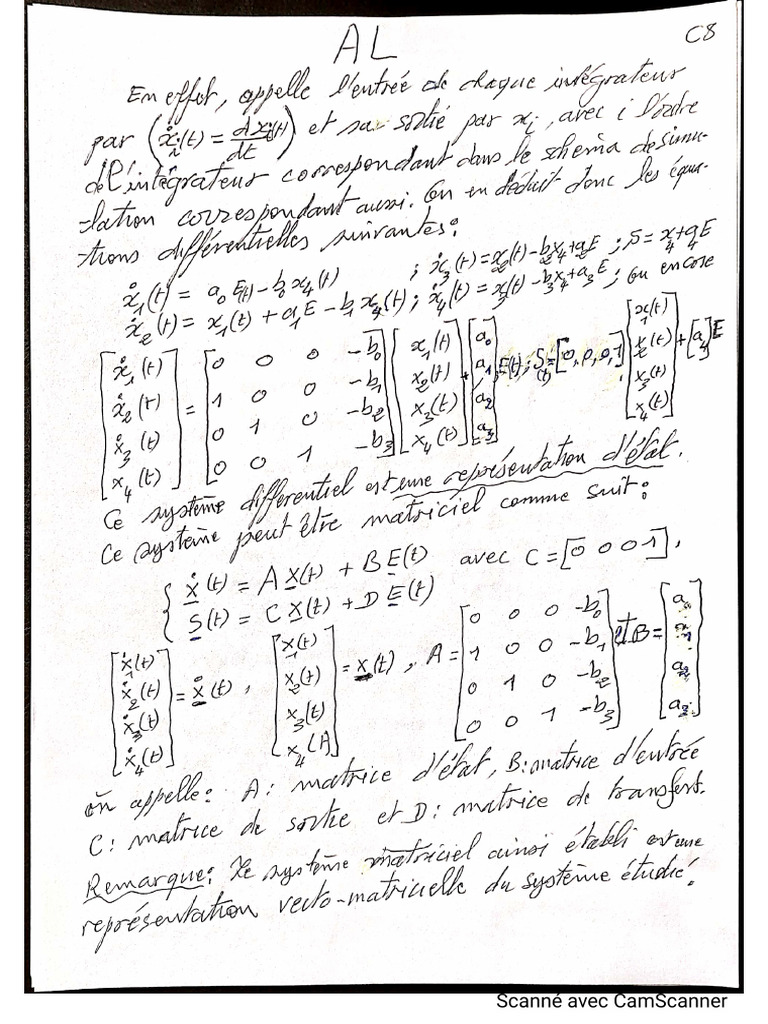 AL
C8
En effet, appelle l'entrée de chaque intégrateur
par (ẋᵢ(t) = dxᵢ(t)/dt) et sa sortie par xᵢ, avec i l'ordre
de l'intégrateur correspondant dans le schema de simu-
-lation correspondant aussi. On en déduit donc les équa-
-tions différentielles suivantes:
ẋ₁(t) = a₀E(t) - b₀x₄(t) ; ẋ₃(t) = x₂(t) - b₂x₄ + a₂E ; S = x₄ + a₄E
ẋ₂(t) = x₁(t) + a₁E - b₁x₄(t) ; ẋ₄(t) = x₃(t) - b₃x₄ + a₃E ; ou encore
[ẋ₁(t) ẋ₂(t) ẋ₃(t) ẋ₄(t)] = [0 0 0 -b₀ ; 1 0 0 -b₁ ; 0 1 0 -b₂ ; 0 0 1 -b₃] [x₁(t) x₂(t) x₃(t) x₄(t)] + [a₀ a₁ a₂ a₃] E(t) ; S(t) = [0, 0, 0, 1] [x₁(t) x₂(t) x₃(t) x₄(t)] + [a₄] E
Ce système differentiel est une représentation d'état.
Ce système peut être matriciel comme suit:
ẋ(t) = A X(t) + B E(t) avec C = [0 0 0 1].
S(t) = C X(t) + D E(t)
[ẋ₁(t) ẋ₂(t) ẋ₃(t) ẋ₄(t)] = ẋ(t), [x₁(t) x₂(t) x₃(t) x₄(t)] = x(t), A = [0 0 0 -b₀ ; 1 0 0 -b₁ ; 0 1 0 -b₂ ; 0 0 1 -b₃] et B = [a₀ a₁ a₂ a₃]
on appelle: A: matrice d'état, B: matrice d'entrée
C: matrice de sortie et D: matrice de transfert.
Remarque: Le système matriciel ainsi établi est une
représentation vecto-matricielle du système étudié.
Scanné avec CamScanner